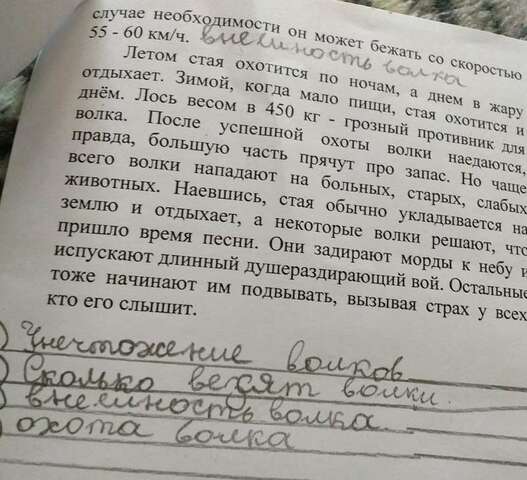 случае необходимости он может бежать со скоростью
55 - 60 км/ч. внешность волка
Летом стая охотится по ночам, а днем в жару
отдыхает. Зимой, когда мало пищи, стая охотится и
днём. Лось весом в 450 кг - грозный противник для
волка. После успешной охоты волки наедаются,
правда, большую часть прячут про запас. Но чаще
всего волки нападают на больных, старых, слабых
животных. Наевшись, стая обычно укладывается на
землю и отдыхает, а некоторые волки решают, что
пришло время песни. Они задирают морды к небу и
испускают длинный душераздирающий вой. Остальные
тоже начинают им подвывать, вызывая страх у всех
кто его слышит.
) Унечтожение волков
) Сколько весят волки.
) внешность волка.
) охота волка